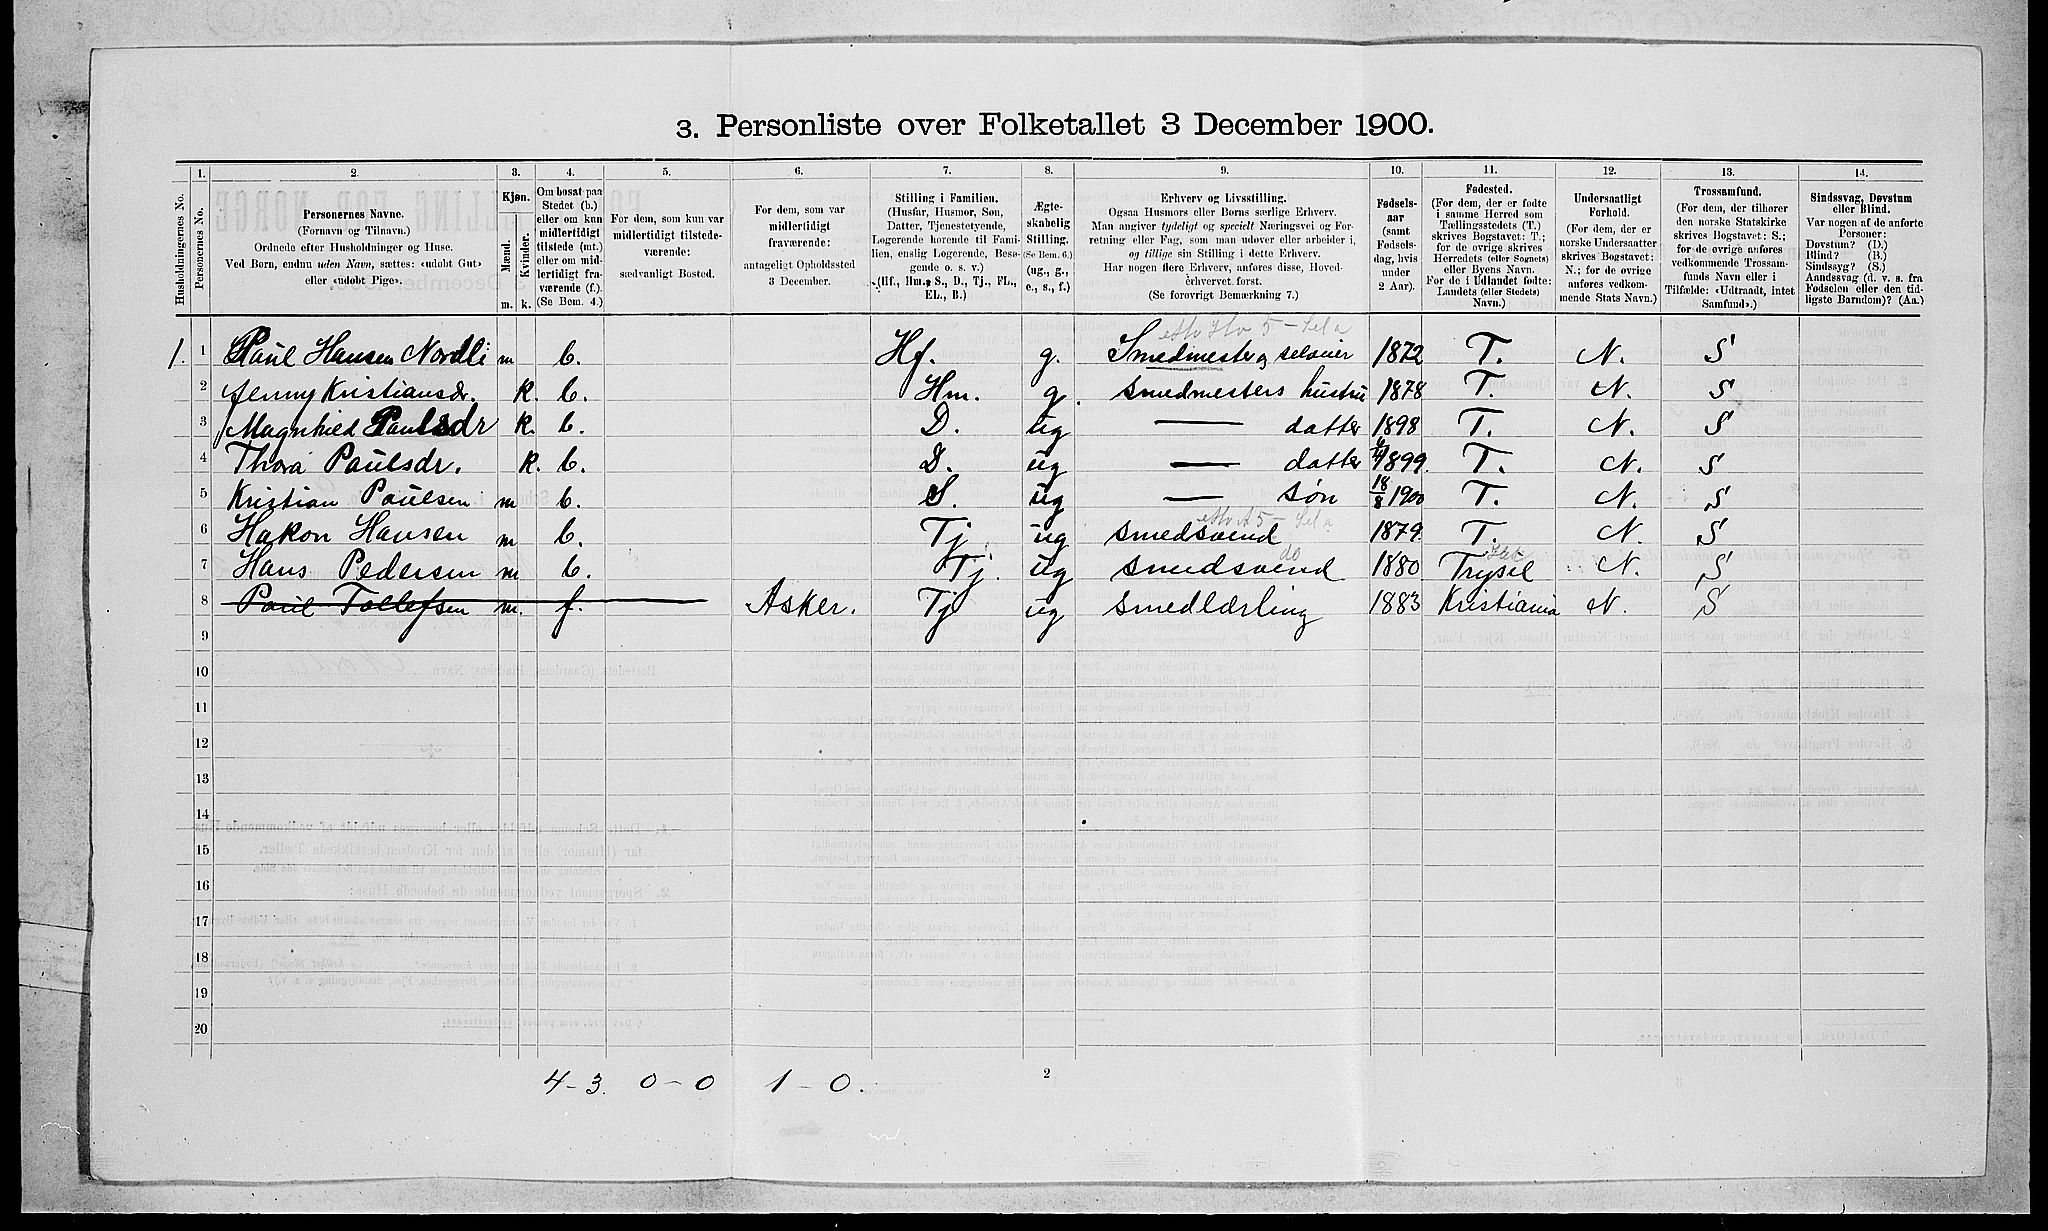 3. Personliste over Folketallet 3 December 1900.
Husholdningernes No.
1.
Personernes No.
2.
Personernes Navne.
(Fornavn og Tilnavn.)
Ordnede efter Husholdninger og Huse.
Ved Børn, endnu uden Navn, sættes: «udøbt Gut»
eller «udøbt Pige».
3.
Kjøn.
Mænd.
Kvinder.
m. k.
4.
Om bosat paa
Stedet (b.)
eller om kun
midlertidigt
tilstede (mt.)
eller om mid-
lertidigt fra-
værende (f.).
(Se Bem. 4.)
5.
For dem, som kun var
midlertidigt tilstede-
værende:
sædvanligt Bosted.
6.
For dem, som var
midlertidigt
fraværende:
antageligt Opholdssted
3 December.
7.
Stilling i Familien.
(Husfar, Husmor, Søn,
Datter, Tjenestetyende,
Logerende hørende til Fami-
lien, enslig Logerende, Besø-
gende o. s. v.)
(Hf., Hm., S., D., Tj., FL.,
EL., B.)
8.
Ægte-
skabelig
Stilling.
(Se Bem. 6.)
(ug., g.,
e., s., f.)
9.
Erhverv og Livsstilling.
Ogsaa Husmors eller Børns særlige Erhverv.
Man angiver tydeligt og specielt Næringsvei og For-
retning eller Fag, som man udøver eller arbeider i,
og tillige sin Stilling i dette Erhverv.
Har nogen flere Erhverv, anføres disse, Hoved-
erhvervet først.
(Se forøvrigt Bemærkning 7.)
10.
Fødsels-
aar
(samt
Fødsels-
dag, hvis
under
2 Aar).
11.
Fødested.
(For dem, der er fødte
i samme Herred som
Tællingsstedets (T.)
skrives Bogstavet: T.;
for de øvrige skrives
Herredets (eller Sognets)
eller Byens Navn.
For de i Udlandet fødte:
Landets (eller Stedets)
Navn.)
12.
Undersaatligt
Forhold.
(For dem, der er
norske Undersaatter
skrives Bogstavet:
N.; for de øvrige
anføres vedkom-
mende Stats Navn.)
13.
Trossamfund.
(For dem, der tilhører
den norske Statskirke
skrives Bogstavet: S.;
for de øvrige anføres
vedkommende Trossam-
funds Navn eller i
Tilfælde: «Udtraadt, intet
Samfund».)
14.
Sindssvag, Døvstum
eller Blind.
Var nogen af de anførte
Personer:
Døvstum? (D.)
Blind? (B.)
Sindssyg? (S.)
Aandssvag (d. v. s. fra
Fødselen eller den tid-
ligste Barndom)? (Aa.)
1. 1 Paul Hansen Nordli m b. Hf. g. Smedmester og 1872 T. N. S
2 Jenny Kristiansdr. k. b. Hm. g. smedmesters hustru 1878 T. N. S
3 Magnhild Paulsdr k. b. D. ug — datter 1898 T. N. S
4 Thora Paulsdr. k. b. D. ug — datter 1899 T. N. S
5 Kristian Paulsen m b. S. ug — søn 18/8 1900 T. N. S
6 Hakon Hansen m b. Tj ug smedsvend 1879 T. N. S
do
7 Hans Pedersen m b. Tj. ug smedsvend 1880 Trysil N. S
8 Paul Tollefsen m. f. Asker. Tj ug smedlærling 1883 Kristiania N. S
9
10
11
12
13
14
15
16
17
18
19
20
4-3 0-0 1-0.
2